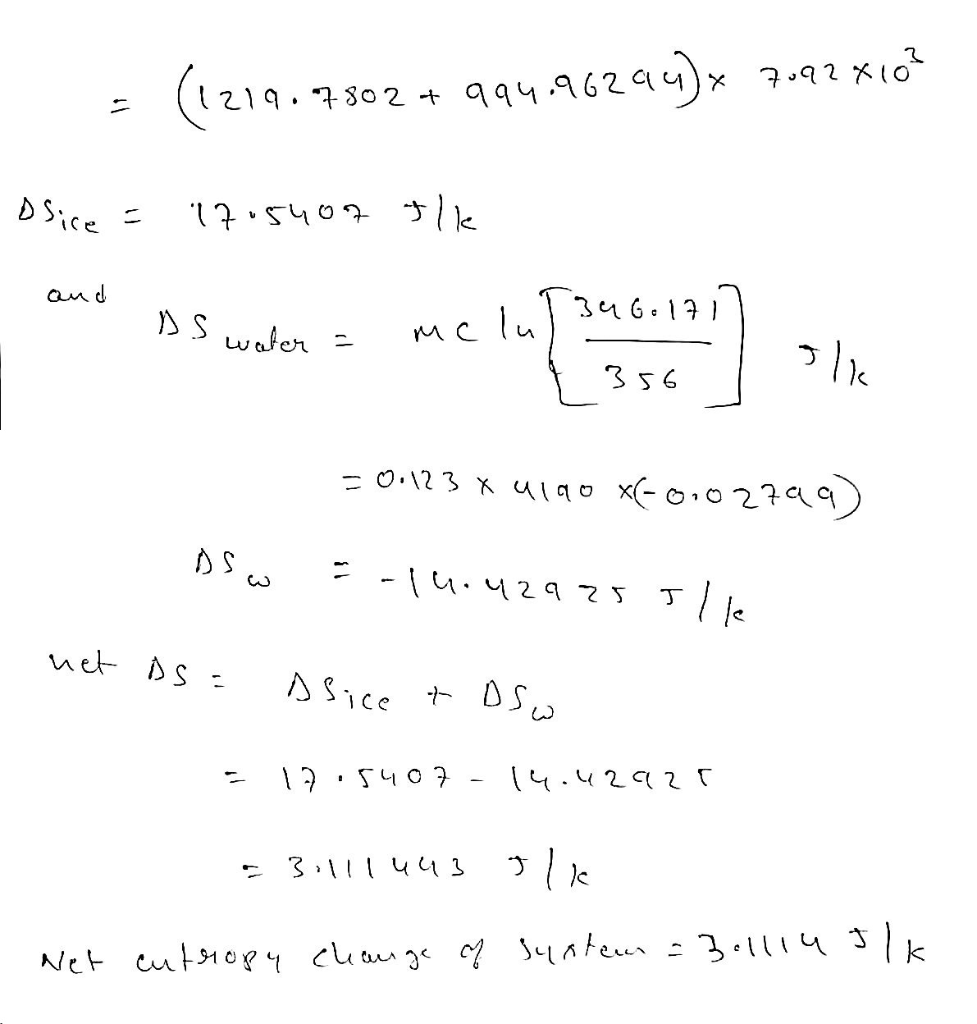 = (1219.7802 + 994.96294) × 7.92 × 10³
ΔSice = 17.5407 J/k
and
ΔS water = mc ln [346.171 / 356] J/k
= 0.123 × 4190 × (-0.02799)
ΔSw = -14.42925 J/k
net ΔS = ΔSice + ΔSw
= 17.5407 - 14.42925
= 3.111443 J/k
Net entropy change of system = 3.1114 J/k